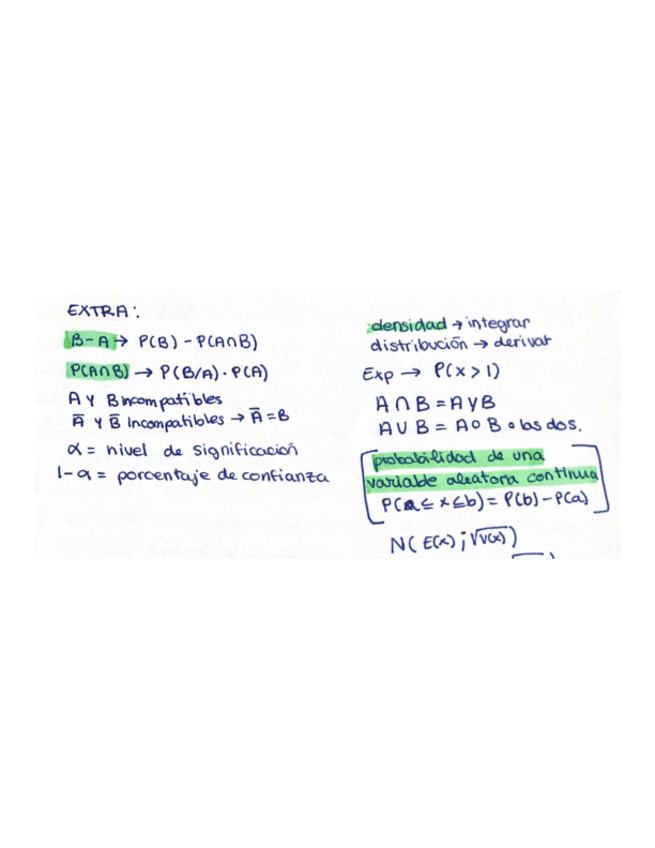 EXTRA:
B-A → P(B) - P(A∩B)
P(A∩B) → P(B/A)·P(A)
A Y B incompatibles
A̅ Y B̅ Incompatibles → A̅ = B
α = nivel de significación
1-α = porcentaje de confianza
densidad → integrar
distribución → derivar
Exp → P(x>1)
A∩B = A y B
A∪B = A o B o las dos.
probabilidad de una
variable aleatoria continua
P(a≤x≤b) = P(b) - P(a)
N(E(x); √V(x))